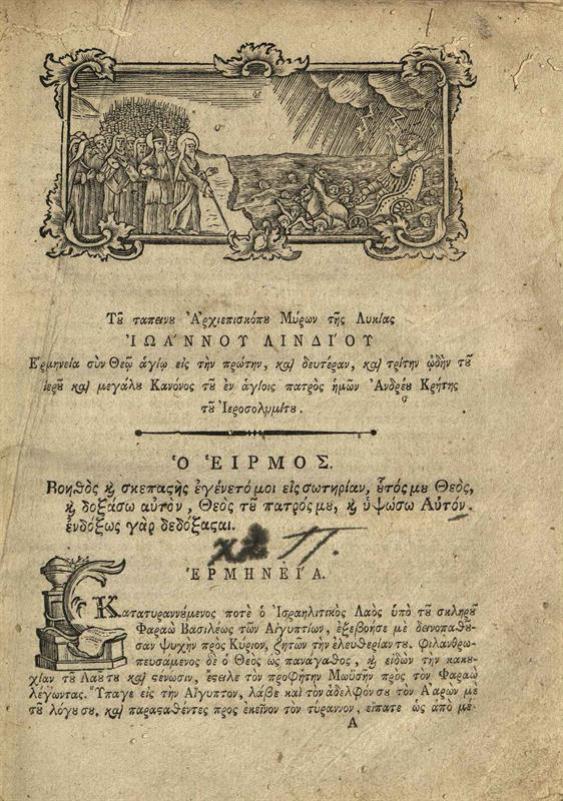 Τȣ͂ ταπεινȣ͂ Ἀρχιεπισκόπȣ Μύρων τῆς Λυκίας
ἸΩΑΝΝΟΥ ΛΙΝΔΙΟΥ
Ἑρμηνεία σὺν Θεῷ ἁγίῳ εἰς τὴν πρώτην, καὶ δευτέραν, καὶ τρίτην ᾠδὴν τȣ͂
ἱερȣ͂ καὶ μεγάλȣ Κανόνος τȣ͂ ἐν ἁγίοις πατρὸς ἡμῶν Ἀνδρέȣ Κρήτης
τȣ͂ Ἱεροσολυμίτȣ.
Ὁ ΕἹΡΜΟΣ.
Βοηθὸς ϗ σκεπαϛὴς ἐγένετό μοι εἰς σωτηρίαν, ȣ̔͂τός μȣ Θεὸς,
ϗ δοξάσω αὐτὸν, Θεὸς τȣ͂ πατρός μȣ, ϗ ὑψώσω Αὐτόν.
ἐνδόξως γὰρ δεδόξαϛαι.
ἙΡΜΗΝΕΙΑ.
Καταтυραννȣ́μενος ποτὲ ὁ Ἰσραηλιτικὸς Λαὸς ὑπὸ τȣ͂ σκληρȣ͂
Φαραὼ Βασιλέως τῶν Αἰγυπτίων, ἐξεβόησε μὲ δεινοπαθȣ͂
σαν ψυχὴν πρὸς Κύριον, ζητῶν τὴν ἐλευθερίαν τȣ. φιλανδρω-
πευσάμενος δὲ ὁ Θεὸς ὡς πανάγαθος, ϗ εἰδὼν τὴν κακȣ-
χίαν τȣ͂ Λαȣ͂ τȣ καὶ ϛένωσιν, ἔϛειλε τὸν προφήτην Μωϋσῆν πρὸς τὸν Φαραὼ
λέγωντας. Ὕπαγε εἰς τὴν Αἴγυπτον, λάβε καὶ τὸν ἀδελφόν σȣ τὸν Ἀαρὼν μὲ
τȣ͂ λόγȣ σȣ. καὶ παραϛαθέντες πρὸς ἐκεῖνον τὸν τύραννον, εἴπατε ὡς ἀπὸ μέ-
Α